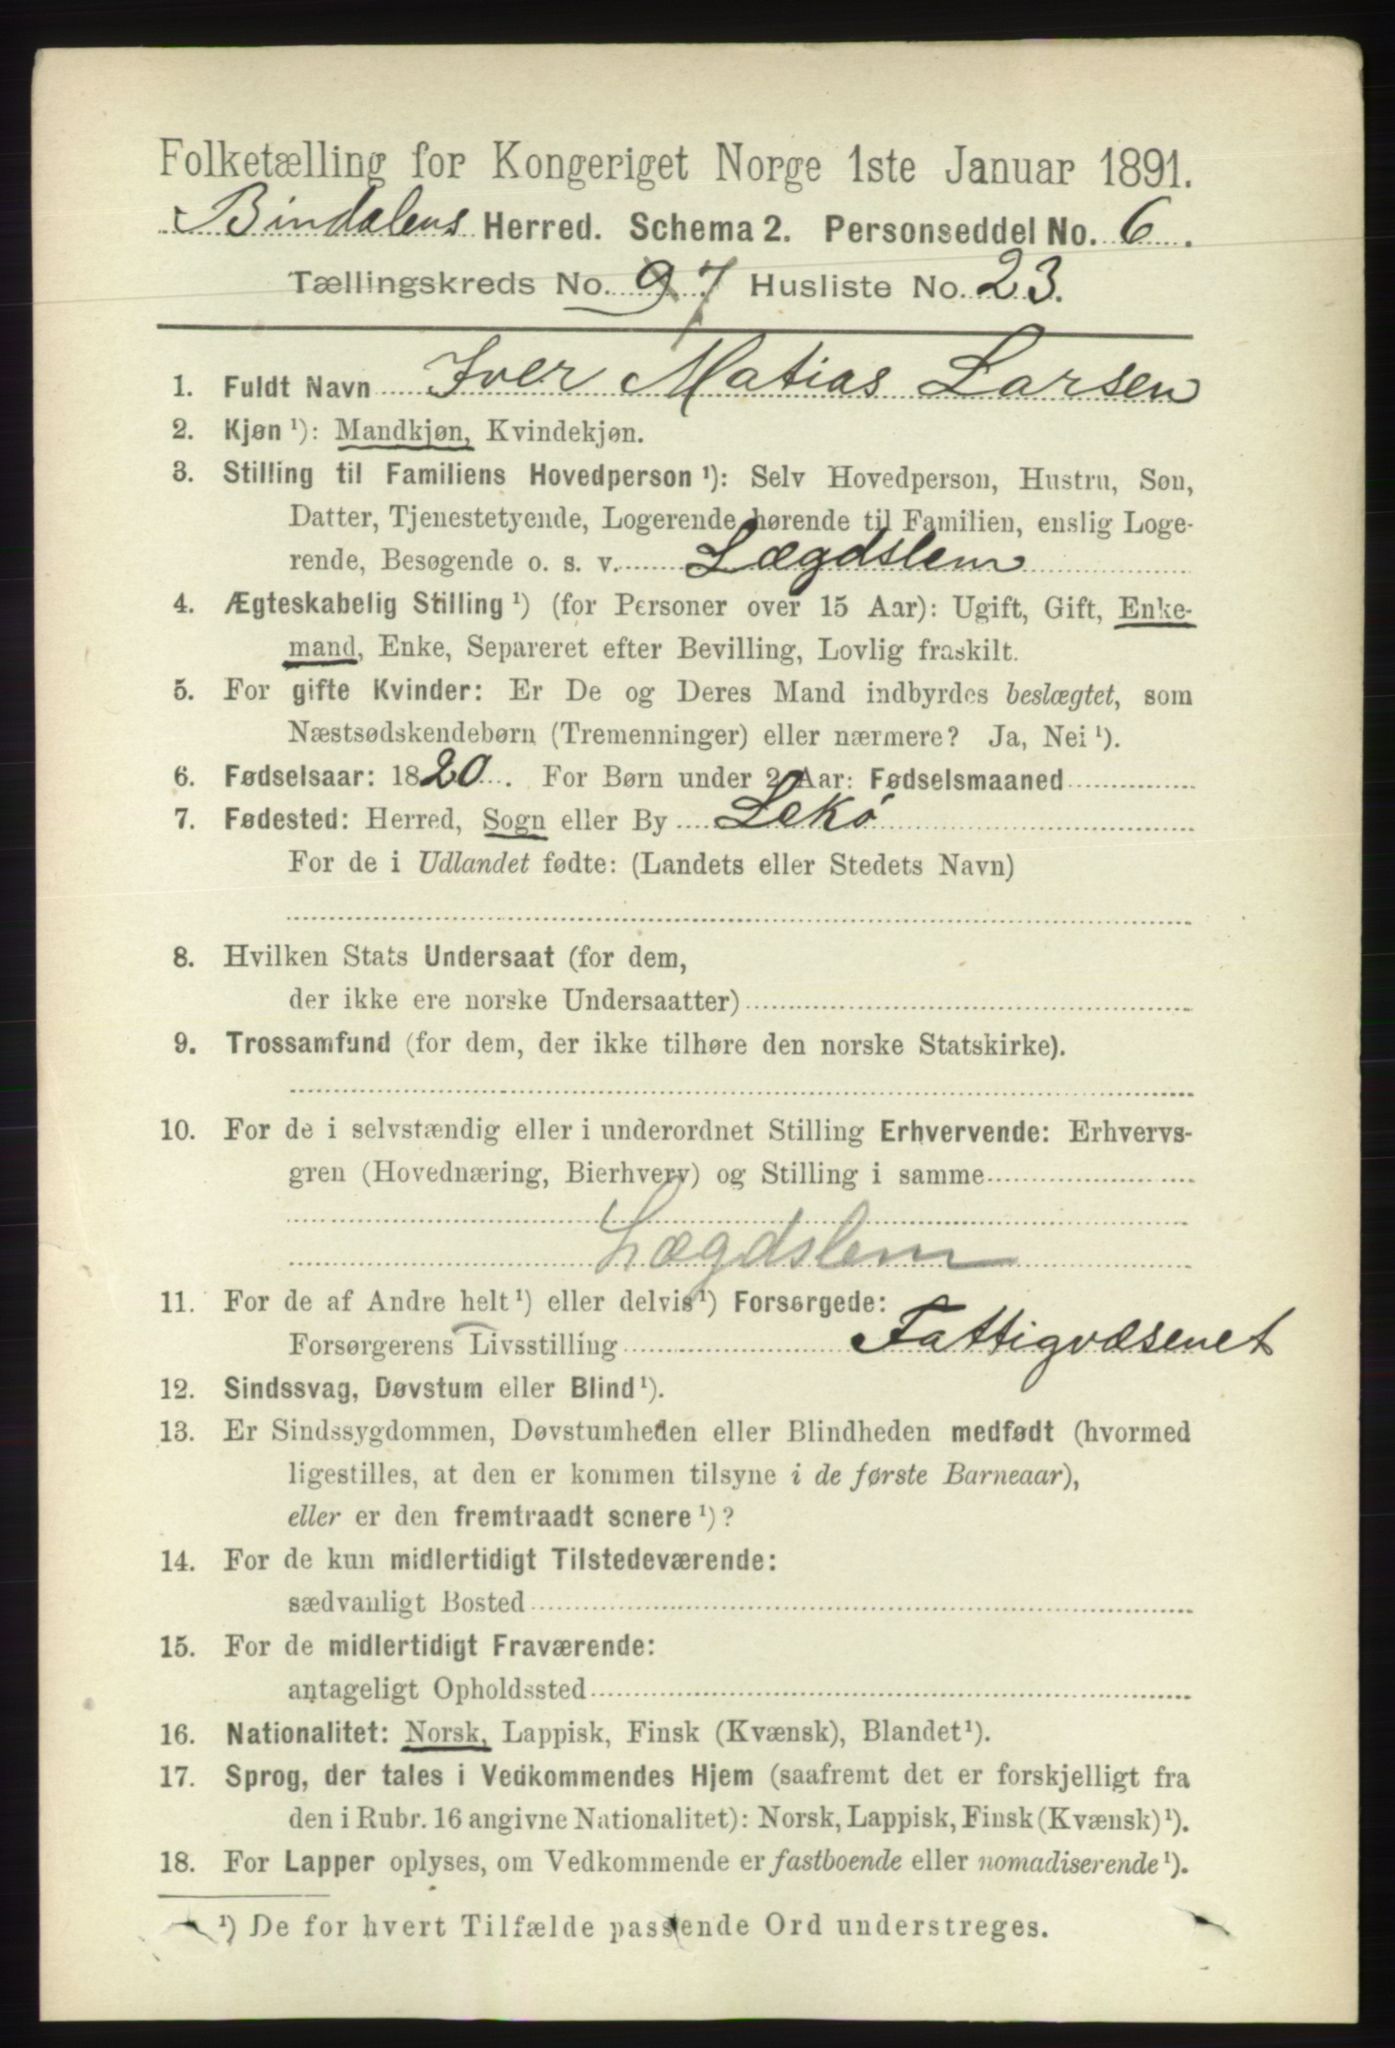 Folketælling for Kongeriget Norge 1ste Januar 1891.
Bindalens Herred. Schema 2. Personseddel No. 6.
Tællingskreds No. 9 7 Husliste No. 23.
1. Fuldt Navn Iver Matias Larsen
2. Kjøn ¹): Mandkjøn, Kvindekjøn.
3. Stilling til Familiens Hovedperson ¹): Selv Hovedperson, Hustru, Søn,
Datter, Tjenestetyende, Logerende hørende til Familien, enslig Loge-
rende, Besøgende o. s. v. Lægdslem
4. Ægteskabelig Stilling ¹) (for Personer over 15 Aar): Ugift, Gift, Enke-
mand, Enke, Separeret efter Bevilling, Lovlig fraskilt.
5. For gifte Kvinder: Er De og Deres Mand indbyrdes beslægtet, som
Næstsødskendebørn (Tremenninger) eller nærmere? Ja, Nei ¹).
6. Fødselsaar: 1820. For Børn under 2 Aar: Fødselsmaaned
7. Fødested: Herred, Sogn eller By Lekø
For de i Udlandet fødte: (Landets eller Stedets Navn)
8. Hvilken Stats Undersaat (for dem,
der ikke ere norske Undersaatter)
9. Trossamfund (for dem, der ikke tilhøre den norske Statskirke).
10. For de i selvstændig eller i underordnet Stilling Erhvervende: Erhvervs-
gren (Hovednæring, Bierhverv) og Stilling i samme
Lægdslem
11. For de af Andre helt ¹) eller delvis ¹) Forsørgede:
Forsørgerens Livsstilling Fattigvæsenet
12. Sindssvag, Døvstum eller Blind ¹).
13. Er Sindssygdommen, Døvstumheden eller Blindheden medfødt (hvormed
ligestilles, at den er kommen tilsyne i de første Barneaar),
eller er den fremtraadt senere ¹)?
14. For de kun midlertidigt Tilstedeværende:
sædvanligt Bosted
15. For de midlertidigt Fraværende:
antageligt Opholdssted
16. Nationalitet: Norsk, Lappisk, Finsk (Kvænsk), Blandet ¹).
17. Sprog, der tales i Vedkommendes Hjem (saafremt det er forskjelligt fra
den i Rubr. 16 angivne Nationalitet): Norsk, Lappisk, Finsk (Kvænsk) ¹).
18. For Lapper oplyses, om Vedkommende er fastboende eller nomadiserende ¹).
¹) De for hvert Tilfælde passende Ord understreges.